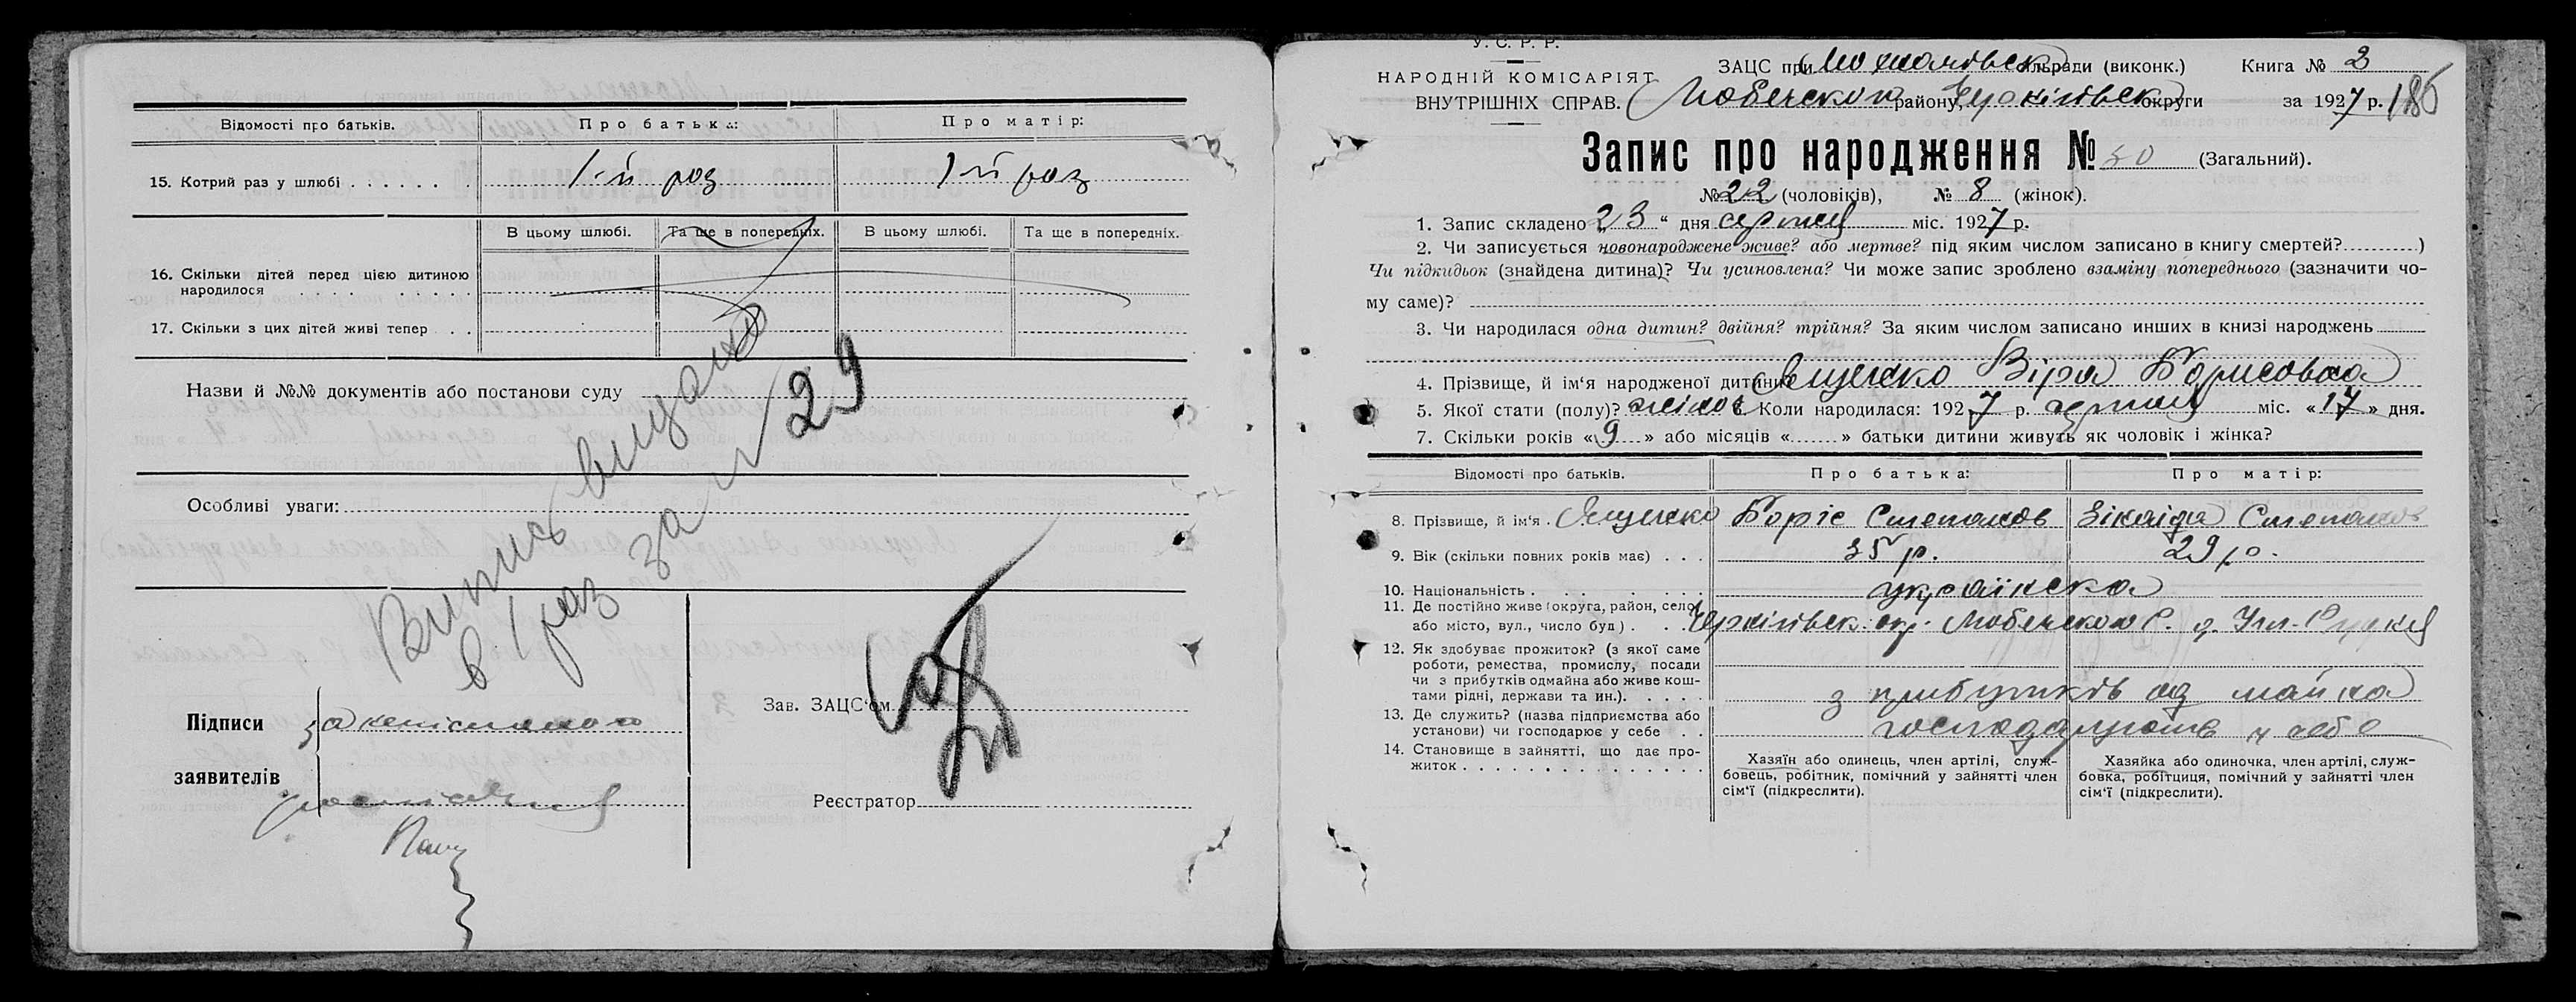 Відомості про батьків.
Про батька:
Про матір:
15. Котрий раз у шлюбі
1-й раз
1-й раз
В цьому шлюбі.
Та ще в попередніх.
В цьому шлюбі.
Та ще в попередніх.
16. Скільки дітей перед цією дитиною
народилося
17. Скільки з цих дітей живі тепер
Назви й №№ документів або постанови суду
Особливі уваги:
Випись видано
в 1 раз за № 29
Підписи
заявителів
Зав. ЗАЦС'ом
Реєстратор
У. С. Р. Р.
НАРОДНІЙ КОМІСАРІЯТ
ВНУТРІШНІХ СПРАВ.
ЗАЦС при сільради (виконк.) Книга № 2
Любечского району, Чернігівськ округи за 1927 р. 186
Запис про народження № 30 (Загальний).
№ 22 (чоловіків), № 8 (жінок).
1. Запис складено „23“ дня серпня міс. 1927 р.
2. Чи записується новонароджене живе? або мертве? під яким числом записано в книгу смертей? )
Чи підкидьок (знайдена дитина)? Чи усиновлена? Чи може запис зроблено взаміну попереднього (зазначити чо-
му саме)?
3. Чи народилася одна дитин? двійня? трійня? За яким числом записано инших в книзі народжень
4. Прізвище, й ім'я народженої дитини Ященко Віра Борисовна
5. Якої стати (полу)? жіноч Коли народилася: 1927 р. серпня міс. «17» дня.
7. Скільки років «9» або місяців « » батьки дитини живуть як чоловік і жінка?
Відомості про батьків.
Про батька:
Про матір:
8. Прізвище, й ім'я. Ященко Боріс Степанов Зінаіда Степанов
9. Вік (скільки повних років має) 35 р. 29 р.
10. Національність українска
11. Де постійно живе (округа, район, село
або місто, вул., число буд.) Чернігівськ. окр. Любечского Р.
12. Як здобуває прожиток? (з якої саме
роботи, ремества, промислу, посади
чи з прибутків одмайна або живе кош-
тами рідні, держави та ин.). з прибутків од майна
13. Де служить? (назва підприємства або
установи) чи господарює у себе господарюють у себе
14. Становище в зайнятті, що дає про-
житок
Хазяїн або одинець, член артілі, служ-
бовець, робітник, помічний у зайнятті член
сім'ї (підкреслити).
Хазяйка або одиночка, член артілі, служ-
бовка, робітциця, помічний у зайнятті член
сім'ї (підкреслити).